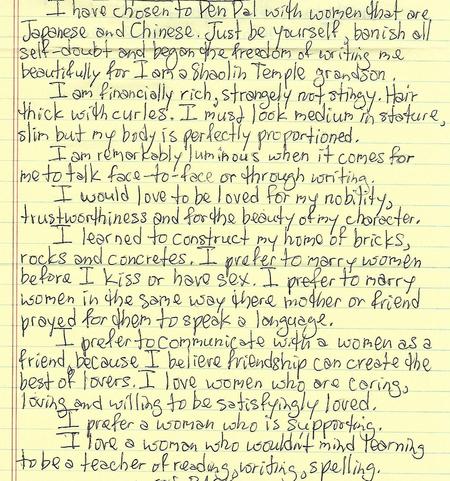 I have chosen to Pen Pal with women that are
Japanese and Chinese. Just be yourself, banish all
self-doubt and began the freedom of writing me
beautifully for I am a Shaolin Temple grandson.
I am financially rich, strangely not stingy. Hair
thick with curles. I must look medium in stature,
slim but my body is perfectly proportioned.
I am remarkably luminous when it comes for
me to talk face-to-face or through writing.
I would love to be loved for my nobility,
trustworthiness and for the beauty of my character.
I learned to construct my home of bricks,
rocks and concretes. I prefer to marry women
before I kiss or have sex. I prefer to marry
women in the same way there mother or friend
prayed for them to speak a language.
I prefer to communicate with a women as a
friend, because I believe friendship can create the
best of lovers. I love women who are caring,
loving and willing to be satisfyingly loved.
I prefer a woman who is supporting.
I love a woman who wouldn't mind learning
to be a teacher of reading, writing, spelling.